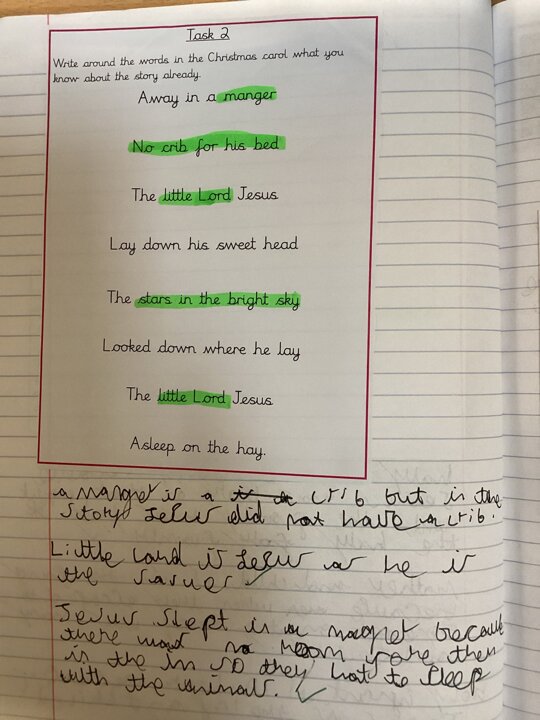 Task 2
Write around the words in the Christmas carol what you
know about the story already.
Away in a manger
No crib for his bed
The little Lord Jesus
Lay down his sweet head
The stars in the bright sky
Looked down where he lay
The little Lord Jesus
Asleep on the hay.
a manget is a is a crib but in the
story Jesus did not have a crib.
Little Lord is Jesus as he is
the savuer
Jesus slept in a magnet because
there was no room fore them
in the in so they hat to sleep
with the animals.